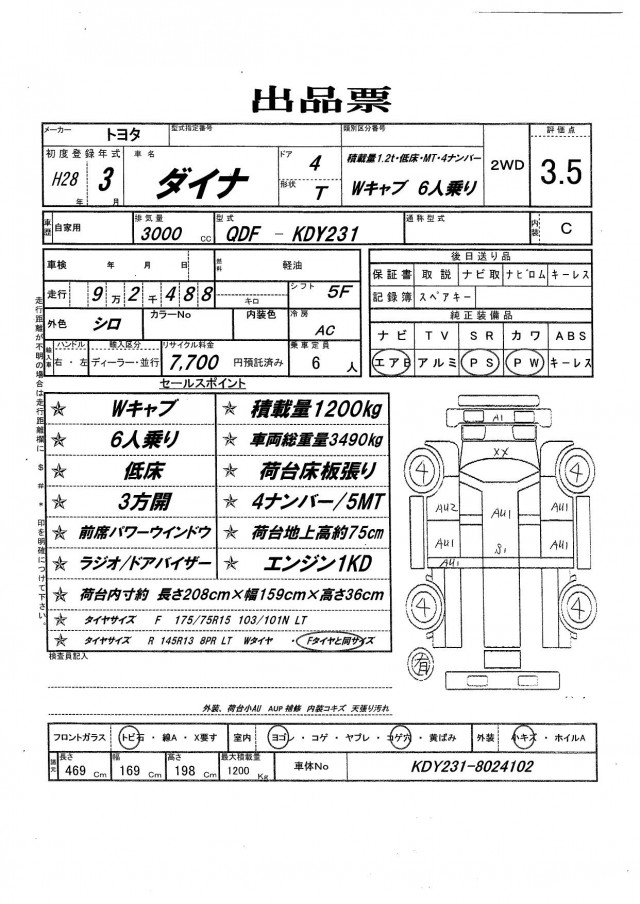 出品票
メーカー トヨタ 型式指定番号 類別区分番号 評価点
初度登録年式 車名 ドア 4 積載量1.2t・低床・MT・4ナンバー 2WD 3.5
H28 年 3 月 ダイナ 形状 T Wキャブ 6人乗り
車歴 自家用 排気量 3000 cc 型式 QDF - KDY231 通称型式 内装 C
車検 年 月 日 燃料 軽油 後日送り品
保証書 取説 ナビ取 ナビロム キーレス
走行 9万2千488 キロ シフト 5F 記録簿 スペアキー
外色 シロ カラーNo 内装色 冷房 AC 純正装備品
ナビ TV SR カワ ABS
輸入車 ハンドル 右・左 輸入区分 ディーラー・並行 リサイクル料金 7,700 円預託済み 乗車定員 6 人
エアB アルミ PS PW キーレス
走行距離が不明の場合は走行距離欄に $ # * 印を明確につけて下さい。
セールスポイント
☆ Wキャブ ☆ 積載量1200kg
☆ 6人乗り ☆ 車両総重量3490kg
☆ 低床 ☆ 荷台床板張り
☆ 3方開 ☆ 4ナンバー/5MT
☆ 前席パワーウインドウ ☆ 荷台地上高約75cm
☆ ラジオ/ドアバイザー ☆ エンジン1KD
☆ 荷台内寸約 長さ208cm×幅159cm×高さ36cm
☆ タイヤサイズ F 175/75R15 103/101N LT
☆ タイヤサイズ R 145R13 8PR LT Wタイヤ ・ Fタイヤと同サイズ
A1
XX
4 4
AU2 AU1 AU1
A1 S1 AU1
4 4
有
検査員記入
外装、荷台小AU AUP補修 内装コキズ 天張り汚れ
フロントガラス トビ石・線A・X要す 室内 ヨゴレ・コゲ・ヤブレ・コゲ穴・黄ばみ 外装 小キズ・ホイルA
諸元 長さ 469 Cm 幅 169 Cm 高さ 198 Cm 最大積載量 1200 Kg 車体No KDY231-8024102